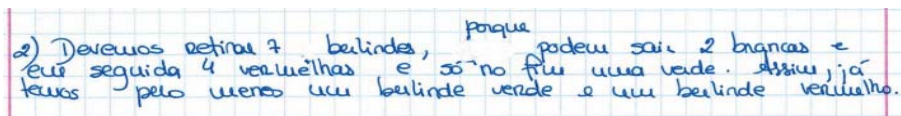 2) Devemos retirar 7 berlindes, porque podem sair 2 brancas e
em seguida 4 vermelhas e só no fim uma verde. Assim, já
temos pelo menos um berlinde verde e um berlinde vermelho.